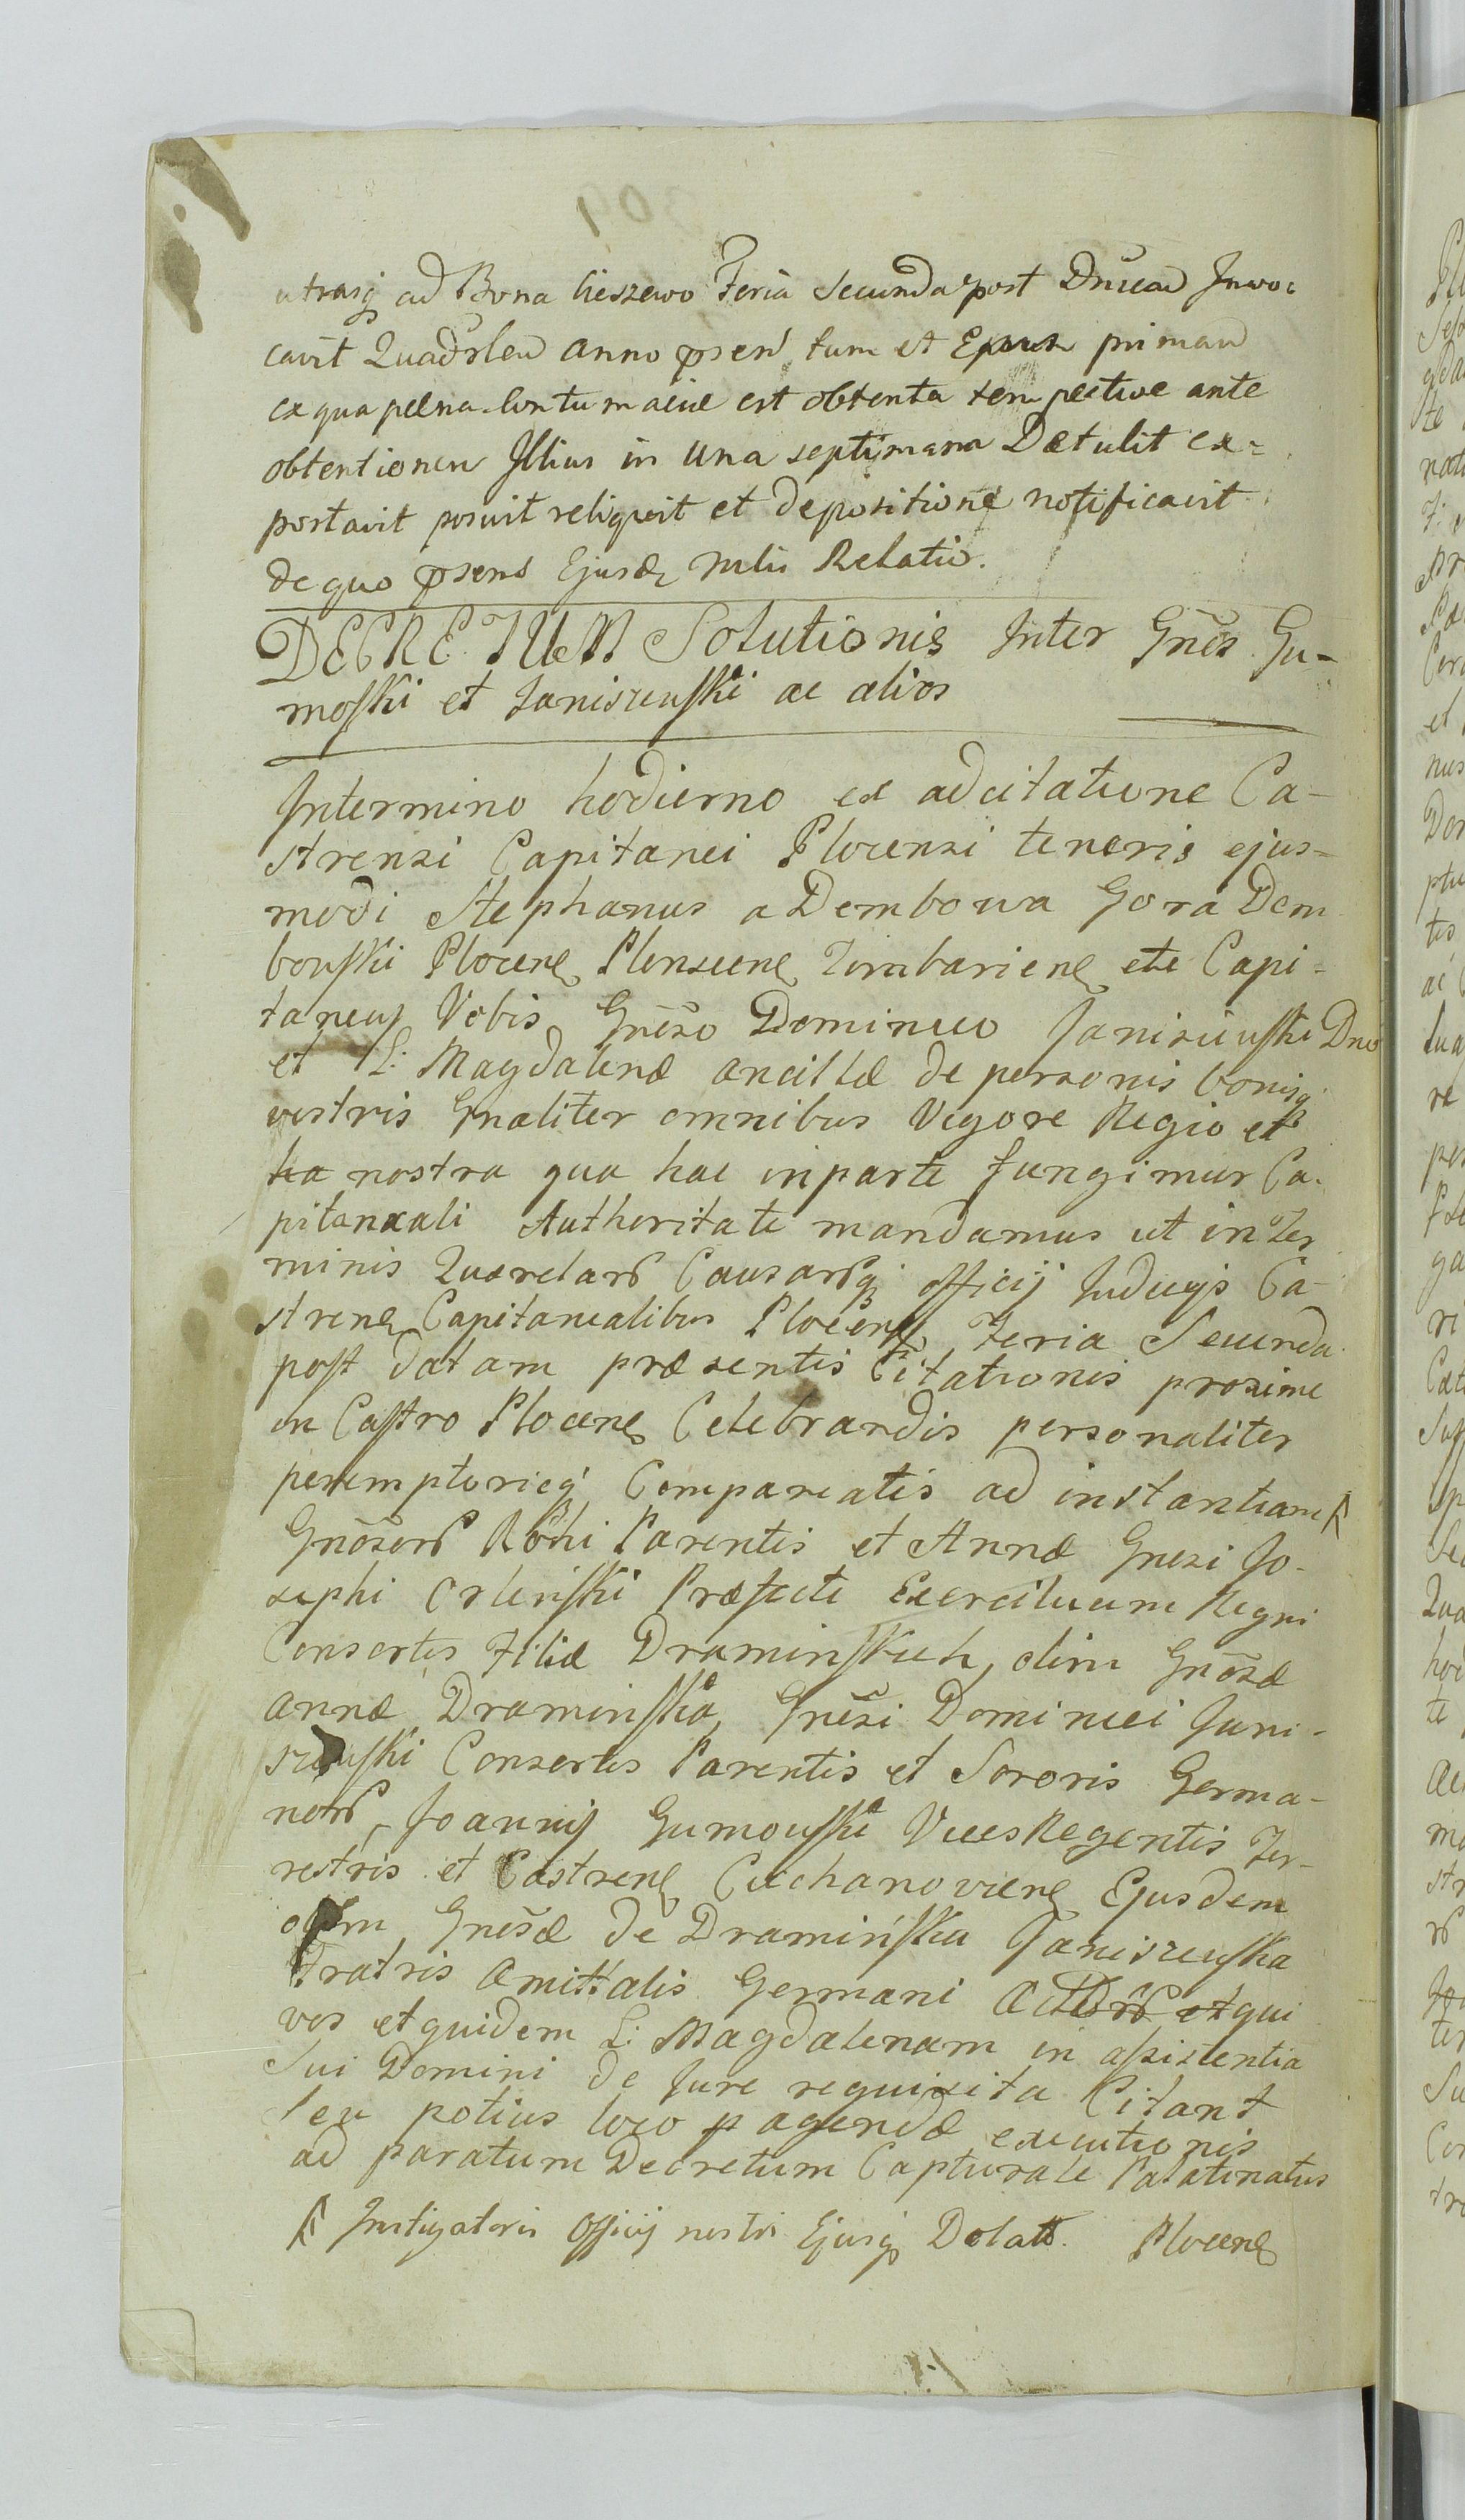 utrasq ad Bona Cieszewo Feria Secunda post Dnicam Invo-
cavit Quadrlem anno psen tum et Epuer primam
ex qua pæna Contumaciæ est obtenta tempestive ante
obtentionem Illius in una septimana Detulit ex-
portavit posuit reliquit et depositione notificavit
de quo psens Ejusd Mlis Relatio.
DECRETUM Solutionis Inter Gnes Gu-
moski et Janiszewski ac alios
Intermino hodierno ex adcitatione Ca-
strensi Capitanei Plocensi tenoris ejus-
modi Stephanus a Dembowa Gora Dem
bowski Plocen Plonscen Zimbarien etc Capi-
taneus Vobis Gneso Dominico Janiszewski Dno
et L: Magdalenæ ancillæ de personis bonisq
vestris gnaliter omnibus Vigore Regio et
ha nostra qua hac inparte fungimur Ca-
pitaneali Authoritate mandamus ut in Ter
minis Querelar Causarq officij Judicijs Ca-
stren Capitanealibus Plocens Feria Secunda
post datam præsentis Citationis proxime
in Castro Plocen Celebrandis personaliter
peremptorieq Compareatis ad instantiam
Gnosor Rochi Parentis et Annæ Gnesi Jo-
sephi Orlenski Præfecti Exercituum Regni
Consortis Filiæ Draminskich, olim Gnosæ
Annæ Draminska, Gnesi Dominici Jani-
szewski Consortis Parentis et Sororis Germa-
nor, Joannis Gumowski Vices Regentis Ter-
restris et Castren Ciechanovien Ejusdem
olim Gnesæ de Draminska Janiszewska
Fratris Amittalis Germani Actor et qui
vos et quidem L: Magdalenam in assistentia
Sui Domini de Jure requisita Citant
seu potius loco pagendæ executionis
ad paratum Decretum Capturale Palatinatus
Instigatoris Officij nostri Ejusq Delat. Plocen